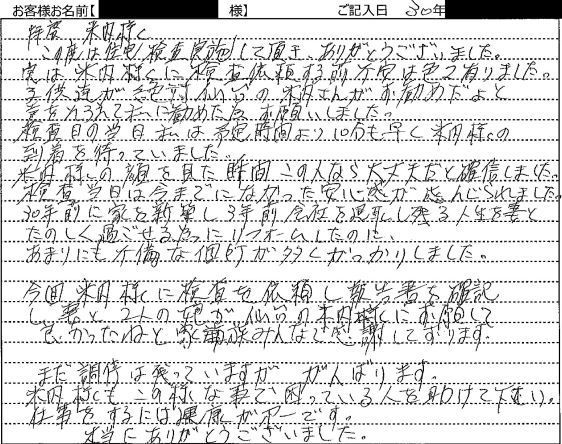 お客様お名前【 様】 ご記入日 30年
拝啓 米内様へ
この度は住宅検査実施して頂き、ありがとうございました。
実は米内様に検査依頼する前不安は色々有りました。
子供達が絶対仙台の米内さんがお勧めだよと
意をそろえて私に勧めた為お願いしました。
検査日の当日私は予定時間より10分も早く米内様の
到着を待っていました。
米内様の顔を見た時間この人なら大丈夫だと確信しました。
検査当日は今までになかった安心感が感んじられました。
30年前に家を新築し3年前会社を退職し残る人生を妻と
たのしく過ごせる為にリフォームしたのに、
あまりにも不備な個所が多くがっかりしました。
今回米内様に検査を依頼し報告書を確認
し、妻と2人の娘が仙台の米内様にお願して
良かったねと家族みんなで感謝しております。
まだ調停は残っていますが がんばります。
米内様もこの様な事で困っている人を助けて下さい。
仕事をするには健康が一番です。
本当にありがとうございました。